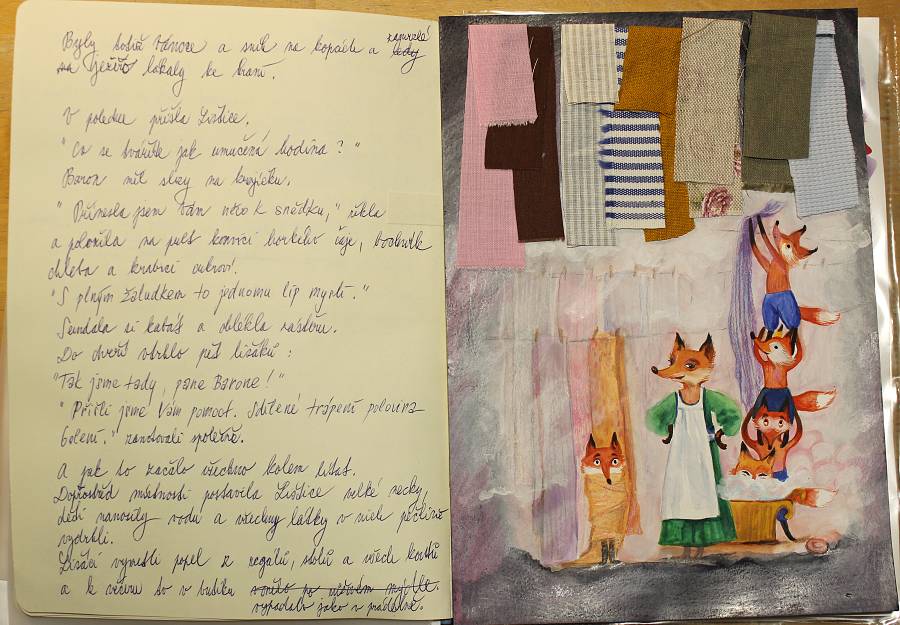 Byly totiž Vánoce a sníh na kopcích a zamrzlá
jezero lákaly ke hraní.
V poledne přišla Lištice.
"Co se tváříte jak umučená hodina?"
Baron měl slzy na krajíčku.
"Přinesla jsem Vám něco k snědku," řekla
a položila na pult konvici horkého čaje, bochník
chleba a krabici cukroví.
"S plným žaludkem to jednomu líp myslí."
Sundala si kabát a oblékla zástěru.
Do dveří vtrhlo pět lišáků:
"Tak jsme tady, pane Barone!"
"Přišli jsme Vám pomoct. Sdílené trápení polovina
bolení." zanotovali společně.
A jak to začalo všechno kolem lítat.
Doprostřed místnosti postavila Lištice velké necky,
děti nanosily vodu a všechny látky v nich pečlivě
vydrhli.
Lišáci vymetli popel z regálů, stolů a všech koutů
a k večeru to v butiku
vypadalo jako v prádelně.